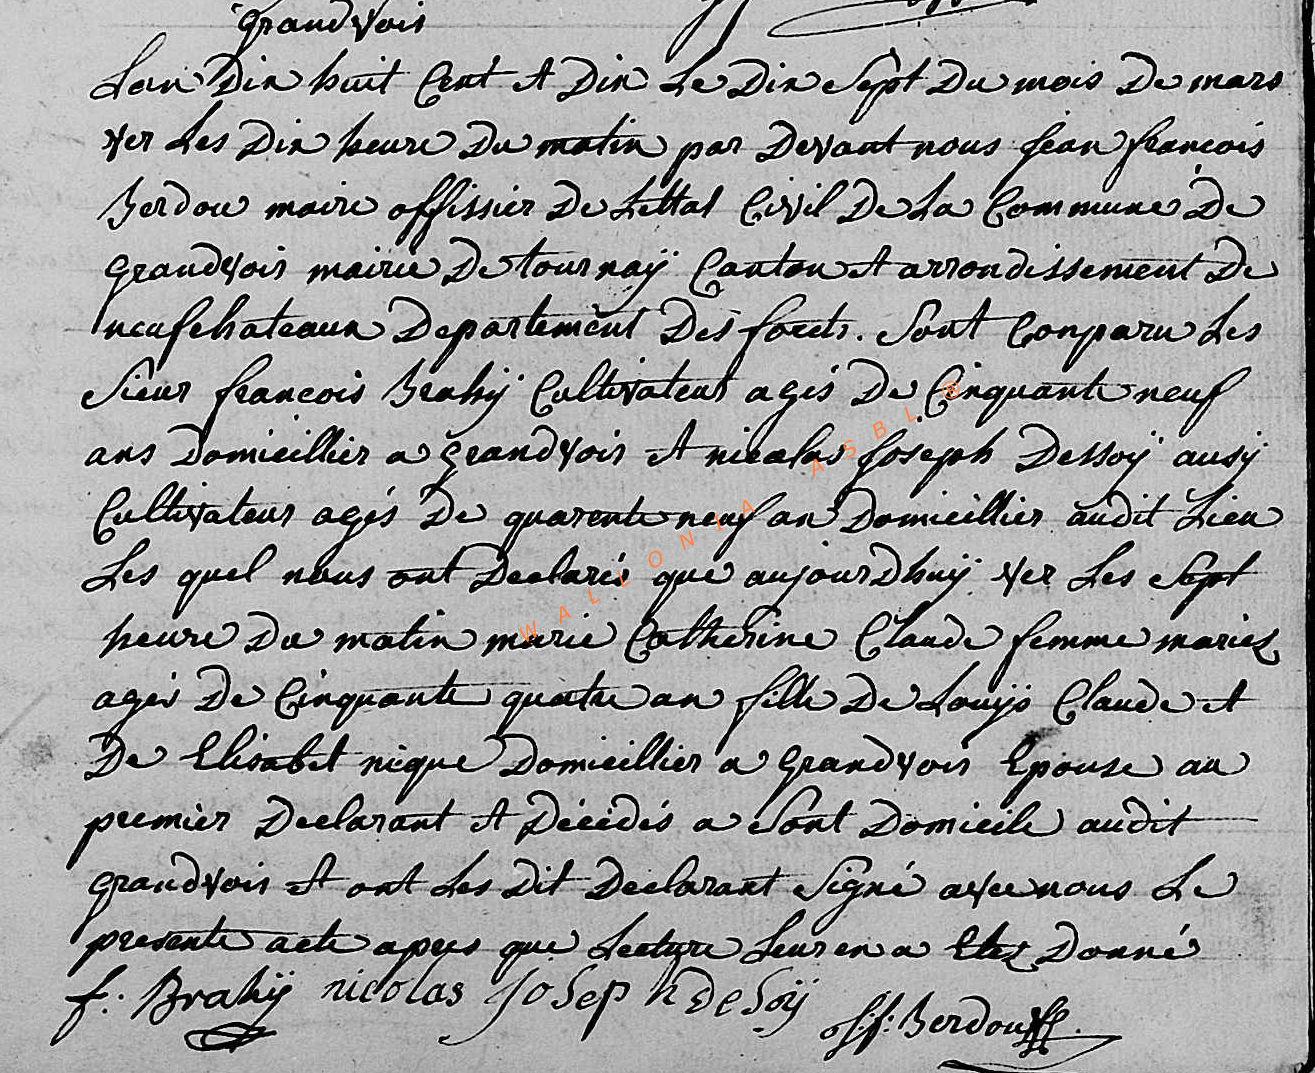 grandvoir
Lan Dix huit Cent et Dix Le Dix Sept Du mois De mars
ver Les Dix heure Du matin par Devant nous jean francois
Berdou maire offissier De Lettat Civil De La Commune De
grandvoir mairie De tournay Canton et arrondissement De
neufchateaux Departement Des forets. Sont Conparu Les
Sieur francois Brahÿ Cultivateur agés De Cinquante neuf
ans Domicillier a grandvoir et nicolas Joseph Dessoÿ ausÿ
Cultivateur agés De quarente neuf an Domicillier audit Lieu
Les quel nous ont Declarés que aujourDhuÿ ver Les Sept
heure Du matin marie Catherine Claude femme mariez
agés De Cinquante quatre an fille De Louÿs Claude et
De Elisabet nique Domicillier a grandvoir Epouse au
premier Declarant et Décédés a Sont Domicile audit
grandvoir et ont Les Dit Declarant Signé avec nous Le
presente acte apres que Lecture Leur en a Etez Donné
f. Brahÿ nicolas JoSeph deSoÿ j.f. Berdoux
WALLONIA ASBL ©